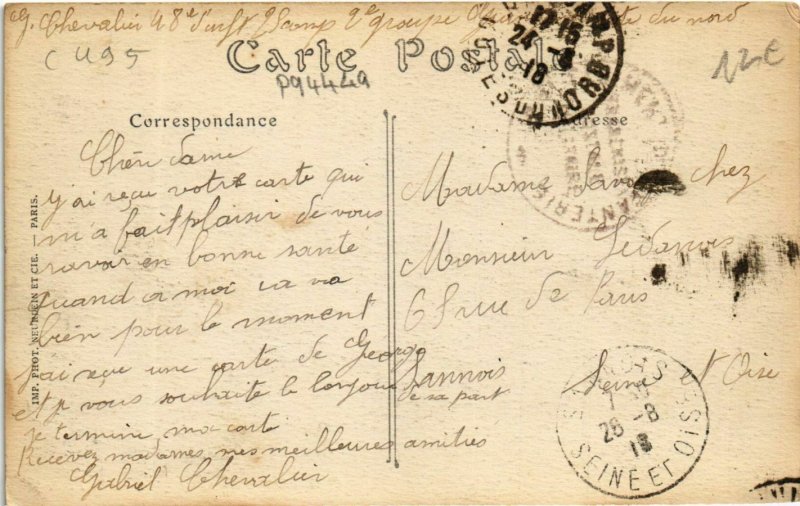 G. Chevalier 48e d'inft camp 2e groupe du nord
CU95
Carte Postale
P94449
12€
17-15
24 -8
18
Correspondance
Adresse
Chère dame
j'ai reçu votre carte qui
m'a fait plaisir de vous
savoir en bonne santé
quand a moi ca va
bien pour le moment
j'ai reçu une carte de George
et je vous souhaite le bonjour
de sa part
Je termine ma carte
Recevez madames mes meilleures amitiés
Gabriel Chevalier
Madame chez
Monsieur
68 rue de Paris
Sannois Seine et Oise
26 -8
18
SEINE ET OISE
IMP. PHOT. NEURDEIN ET CIE. — PARIS.